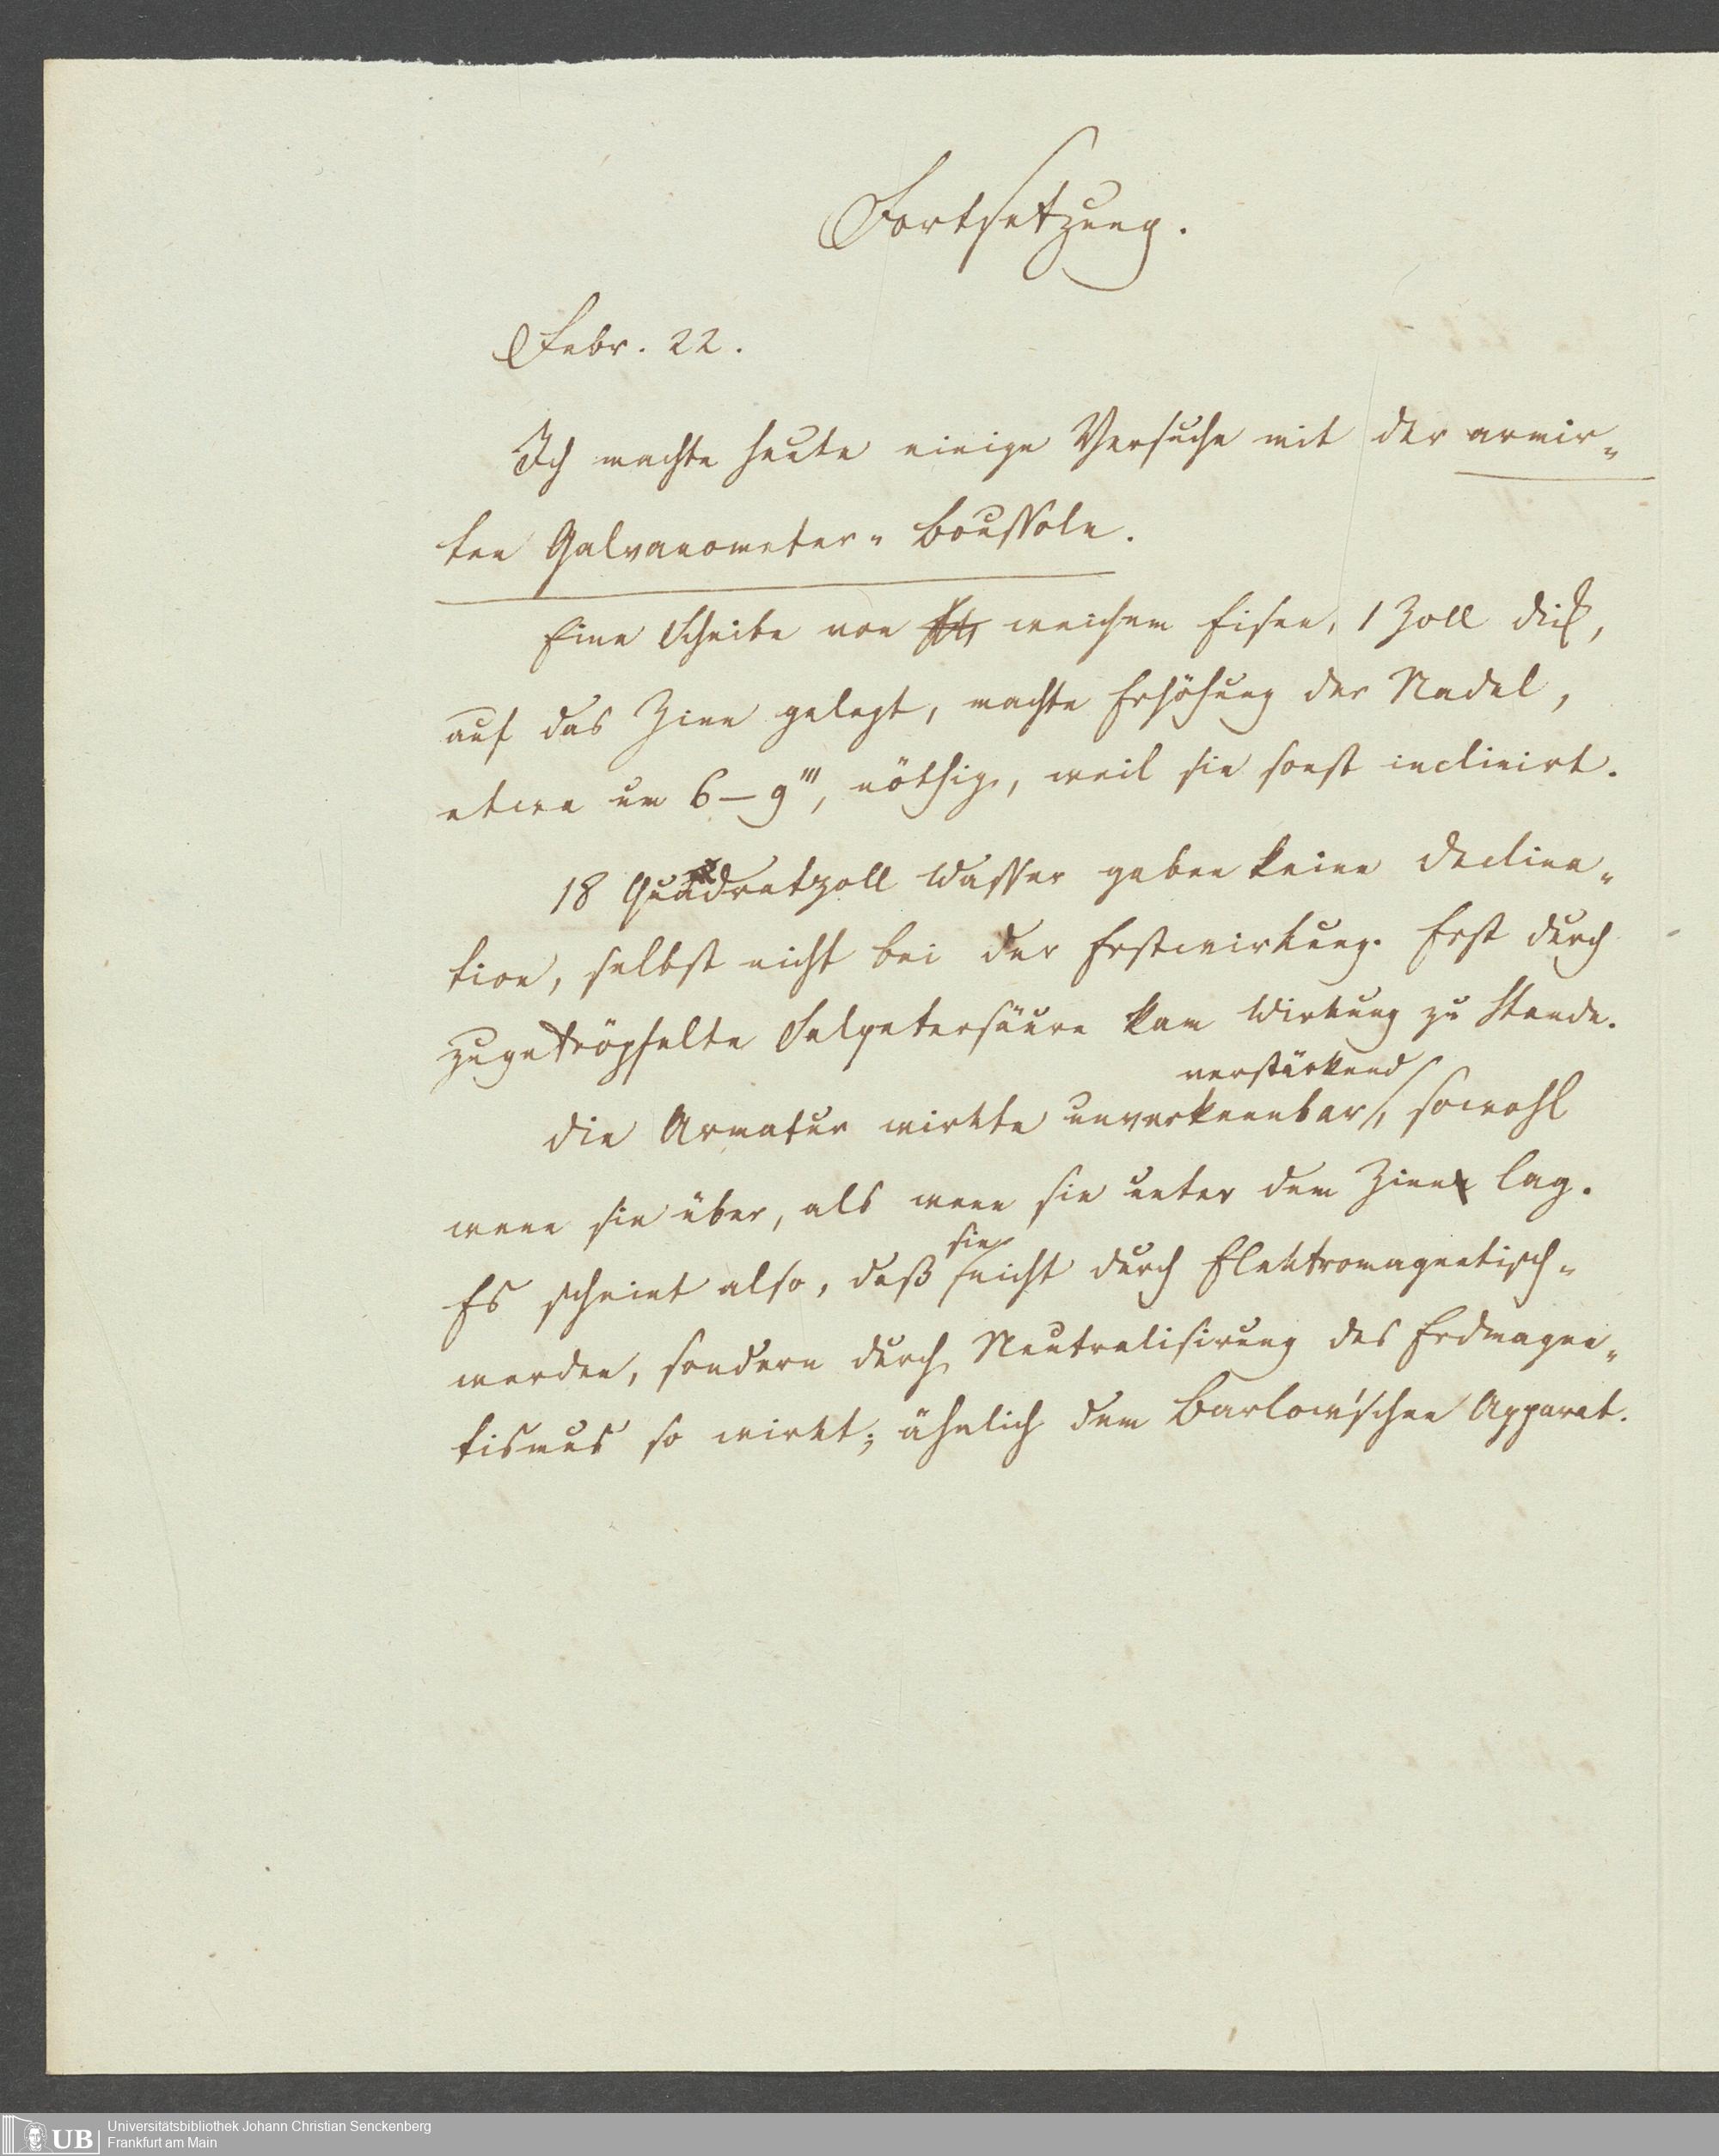 Fortsetzung.
Febr. 22.
Ich machte heute einige Versuche mit der armir-
ten Galvanometer-Boussole.
Eine Scheibe von weichem Eisen, 1 Zoll dick,
auf das Zinn gelegt, machte Erhöhung der Nadel,
etwa um 6–9''', nöthig, weil sie sonst inclinirt.
18 Quadratzoll Wasser gaben keine Declina-
tion, selbst nicht bei der Erstwirkung. Erst durch
zugetröpfelte Salpetersäure kam Wirkung zu Stande.
verstärkend
Die Armatur wirkte unverkennbar, sowohl
wenn sie über, als wenn sie unter dem Zinn lag.
sie
Es scheint also, daß nicht durch Elektromagnetisch-
werden, sondern durch Neutralisirung des Erdmagne-
tismus so wirkt; ähnlich dem Barlow'schen Apparat.
UB
Universitätsbibliothek Johann Christian Senckenberg
Frankfurt am Main